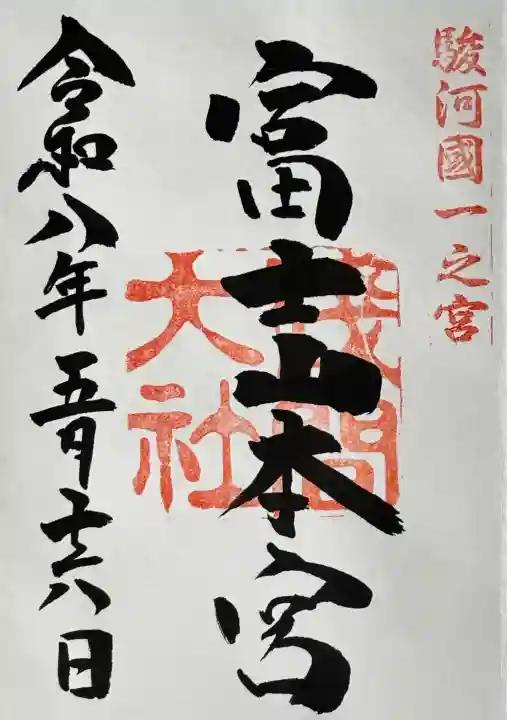 駿河國一之宮
富士山本宮
淺間
大社
令和八年五月十六日